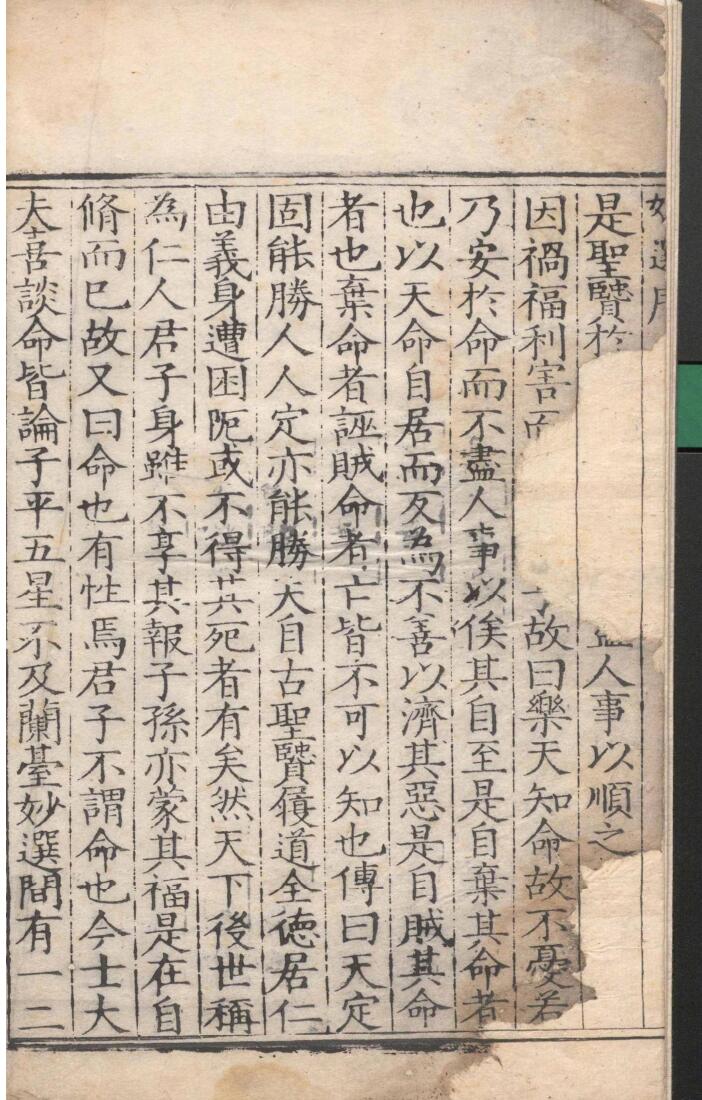 是聖贒於盡人事以順之
因禍福利害而故曰樂天知命故不憂若
乃安於命而不盡人事以俟其自至是自棄其命者
也以天命自居而反為不善以濟其惡是自賊其命
者也棄命者誣賊命者亡皆不可以知也傳曰天定
固能勝人人定亦能勝天自古聖贒履道全德居仁
由義身遭困阨或不得其死者有矣然天下後世稱
為仁人君子身雖不享其報子孫亦蒙其福是在自
脩而已故又曰命也有性焉君子不謂命也今士大
夫喜談命皆論子平五星不及蘭臺妙選間有一二